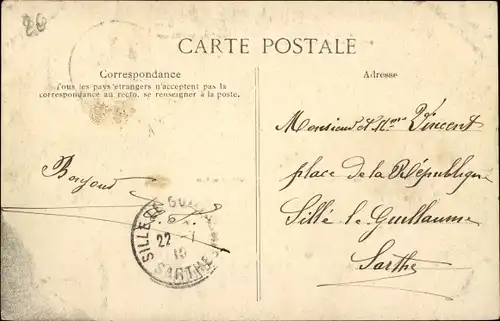 26
CARTE POSTALE
Correspondance
Tous les pays étrangers n'acceptent pas la
correspondance au recto, se renseigner à la poste.
Adresse
Monsieur et Mme Vincent
place de la République
Sillé le Guillaume
Sarthe
SILLE
22 - 1
SARTHE